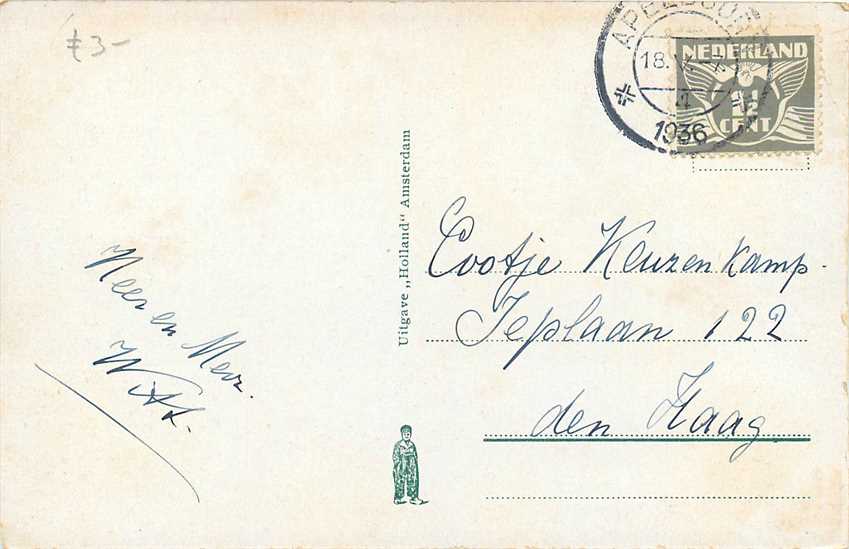 £ 3-
APELDOORN
18.V
1936
NEDERLAND
1½
CENT
Uitgave „Holland" Amsterdam
Heer en Mevr.
Witt.
Eootje Keuzenkamp.
Ieplaan 122
den Haag